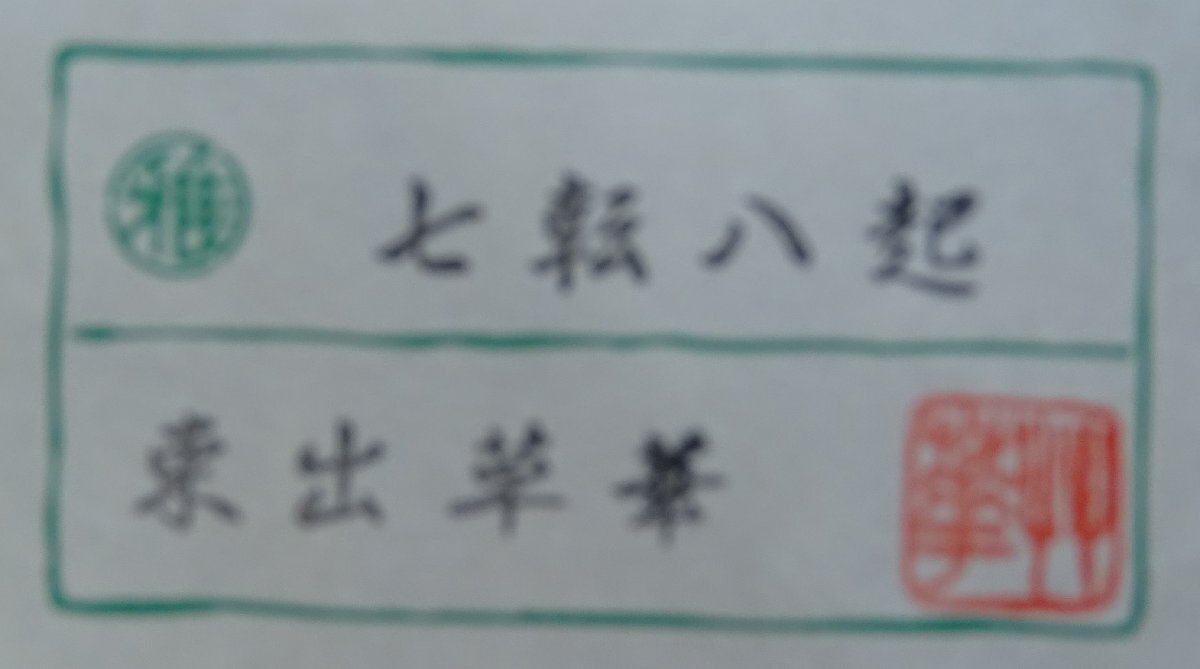 雅 七転八起
東出苹華